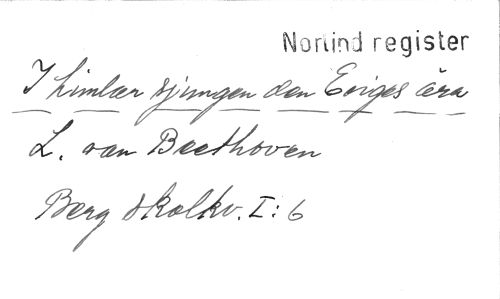 Norlind register
I himlar sjungen den Eviges ära
L. van Beethoven
Berg skolkv. I: 6